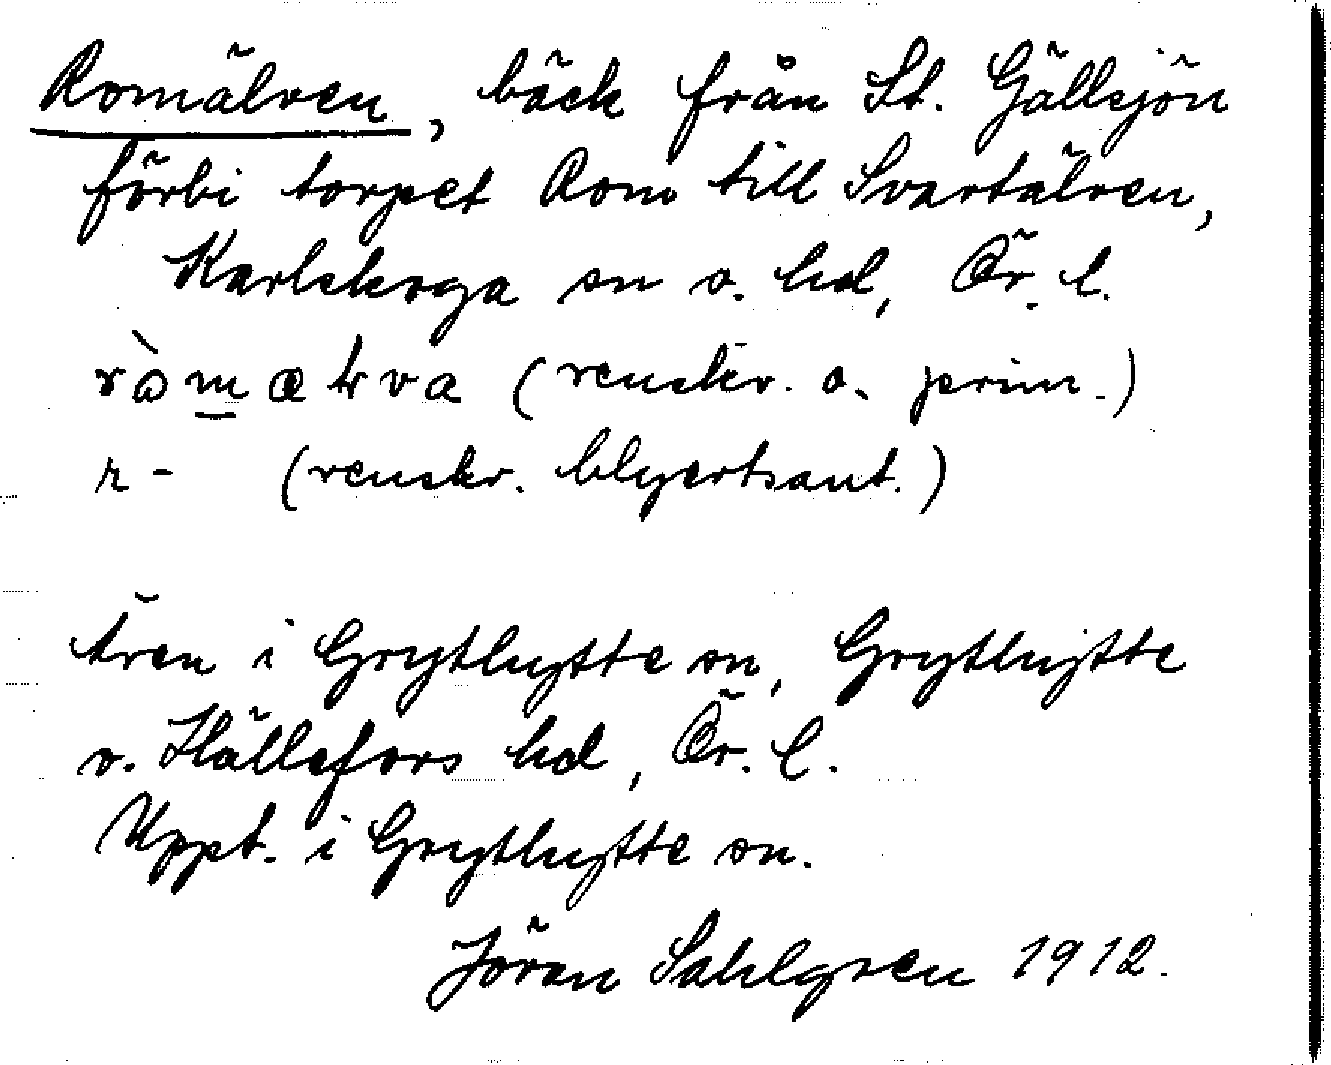 Romälven, bäck från St. Gällsjön
förbi torpet Rom till Svartälven,
Karlskoga sn o. hd, Ör. l.
(renskr. o. prim.)
r- (renskr. blyertsant.)
Även i Grythytte sn, Grythytte
o. Hällefors hd, Ör. l.
Uppt. i Grythytte sn.
Jöran Sahlgren 1912.